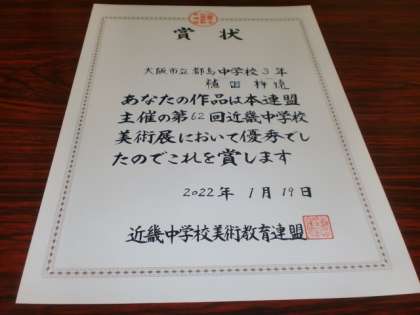 賞状
大阪市立都島中学校3年
植田
あなたの作品は本連盟
主催の第62回近畿中学校
美術展において優秀でし
たのでこれを賞します
2022年 1月 19日
近畿中学校美術教育連盟